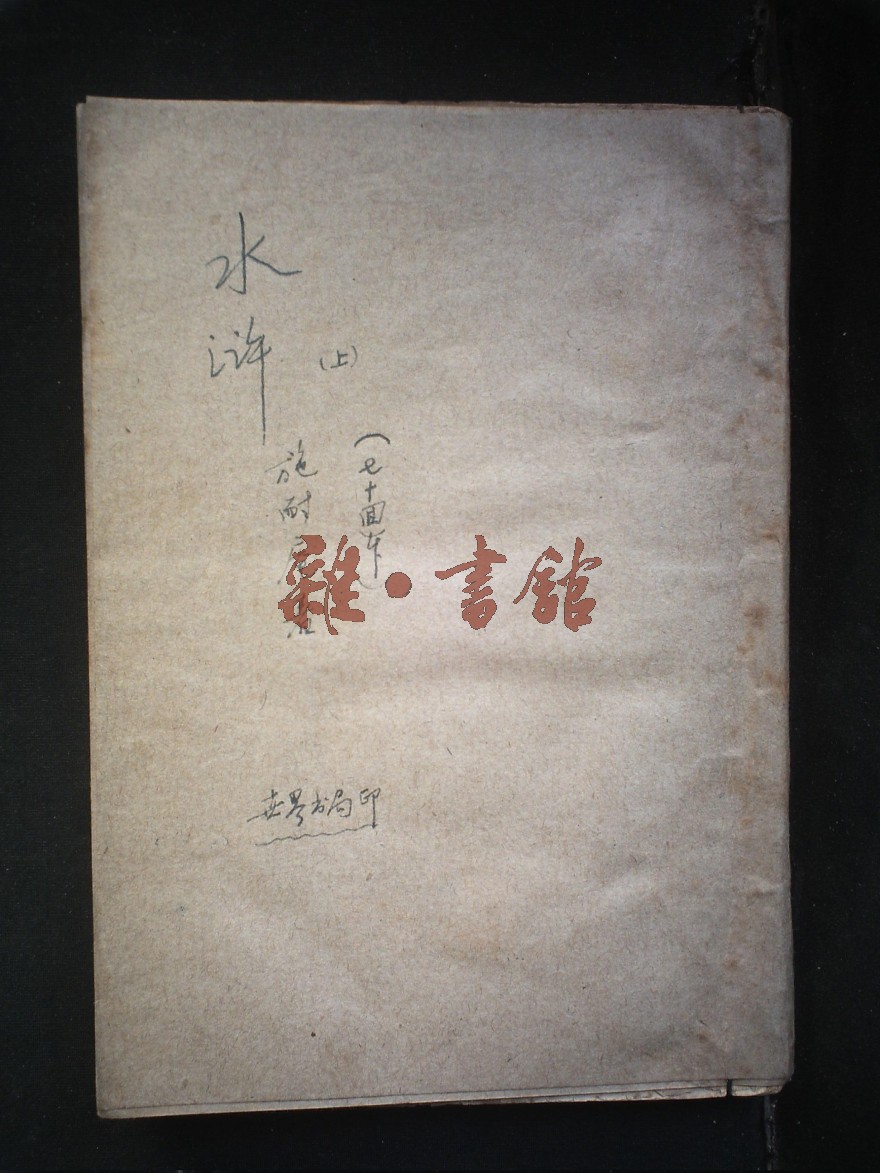 水浒
(上)
(七十回本)
施耐庵著
雜·書館
世界书局印